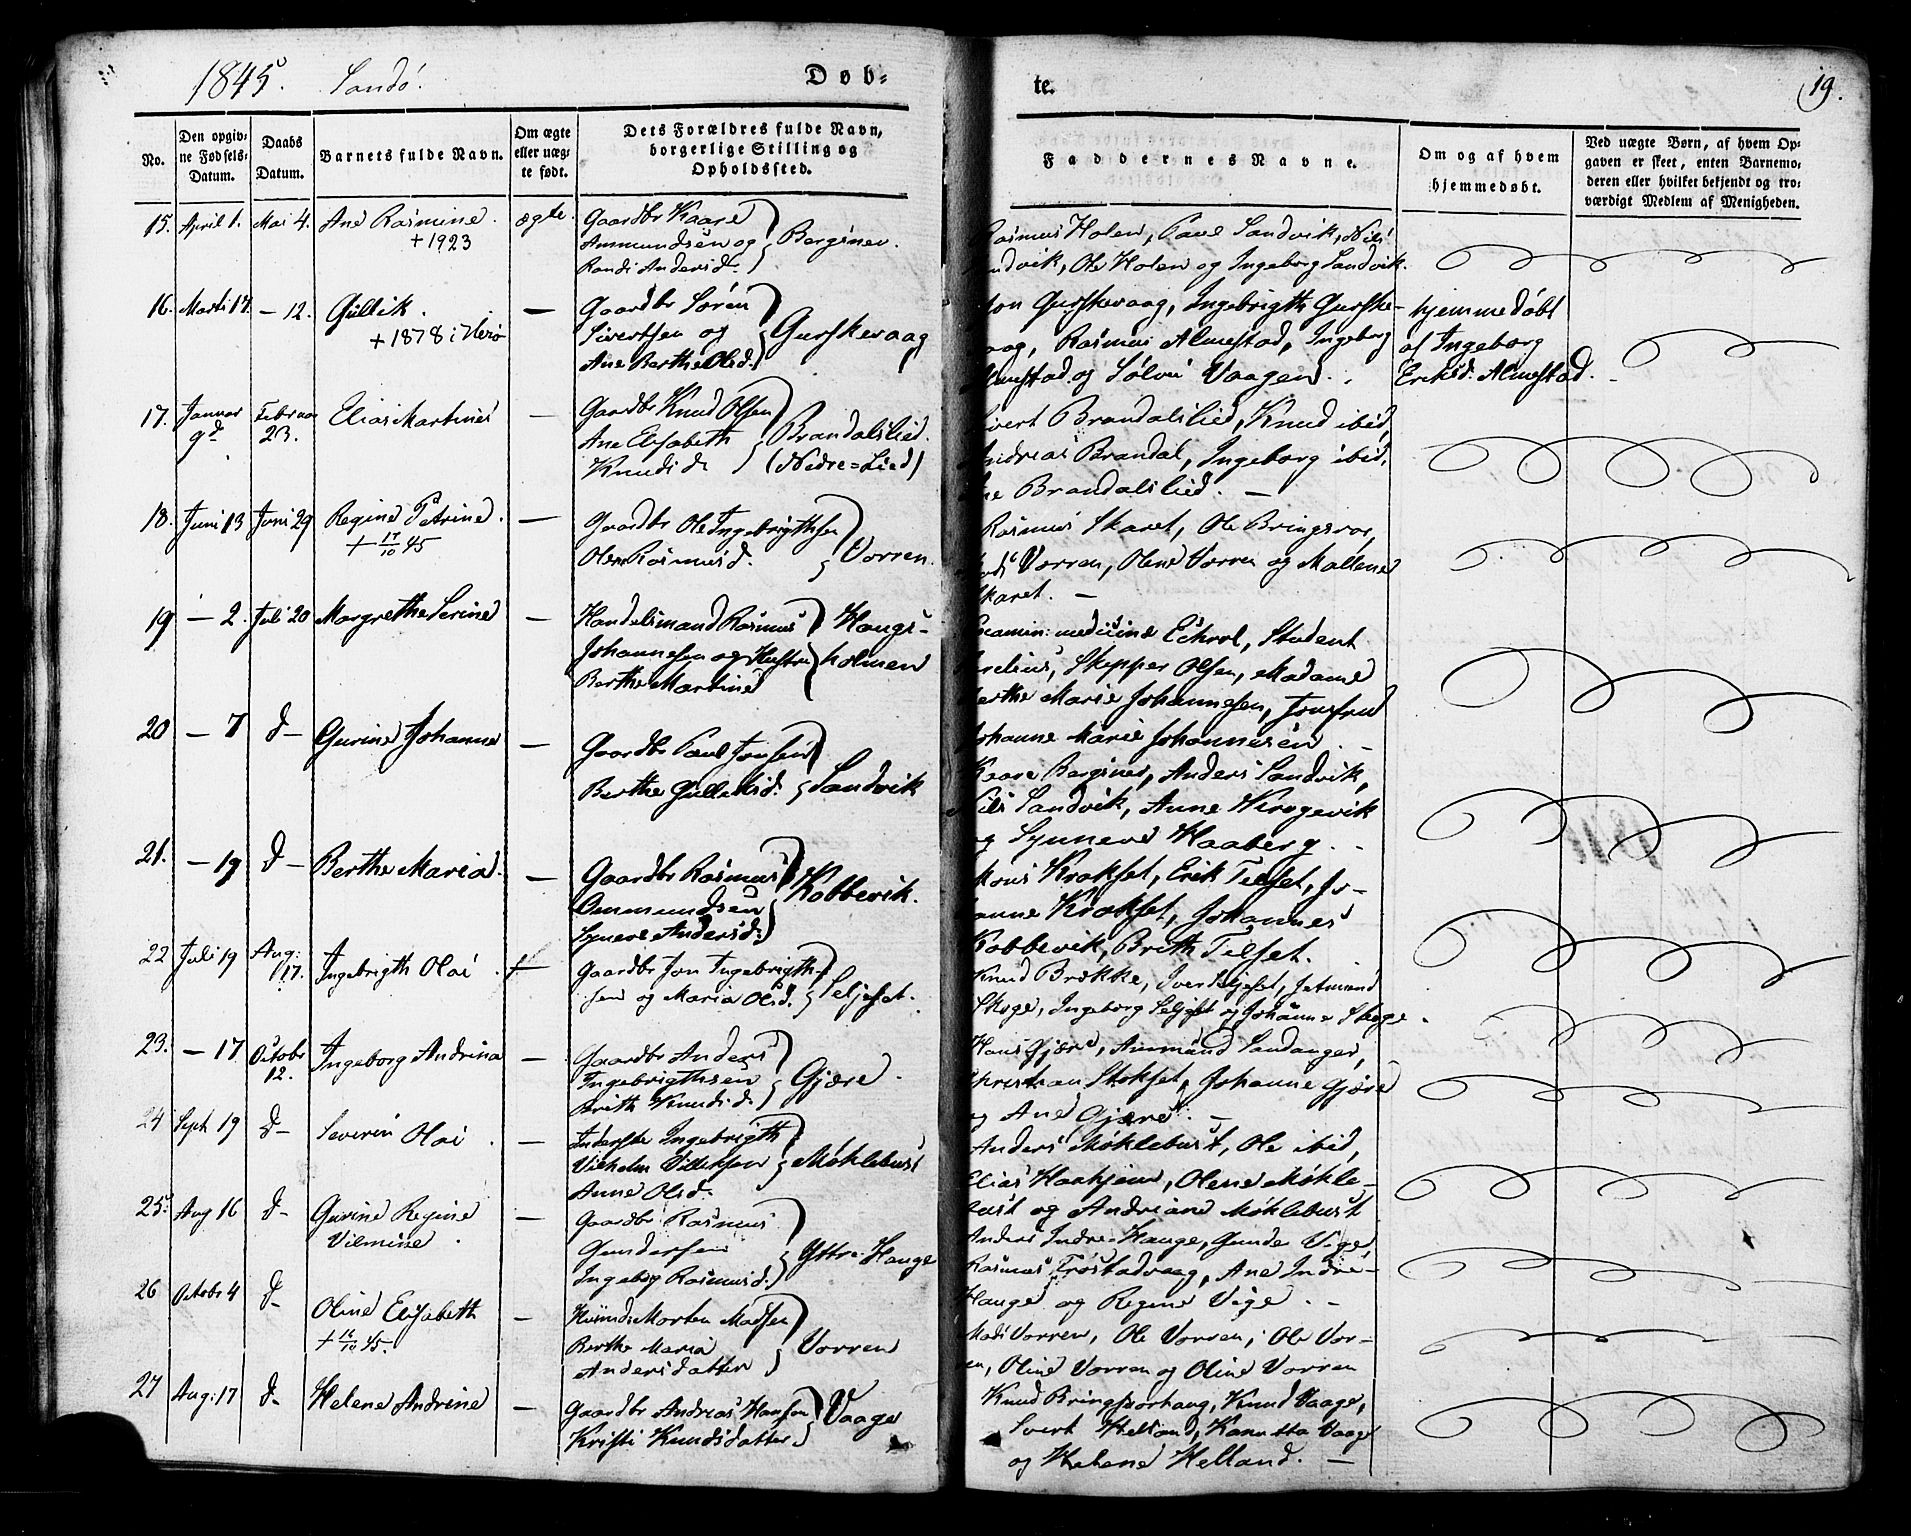 1845. Sandø.
Døb=
te.
19.
No.
Den opgiv=
ne Fødsels=
Datum.
Daabs
Datum.
Barnets fulde Navn.
Om ægte
eller uæg=
te født.
Dets Forældres fulde Navn,
borgerlige Stilling og
Opholdssted.
Faddernes Navne.
Om og af hvem
hjemmedøbt.
Ved uægte Børn, af hvem Op=
gaven er skeet, enten Barnemo=
deren eller hvilket bekjendt og tro=
værdigt Medlem af Menigheden.
15. April 1. Mai 4. Ane Rasmine. ægte. Gaardbr Kaare
+ 1923
Ammundsen og Bergsnev.
Randi Andersd.
Rasmus Holen, Paul Sandvik, Nils
ndvik, Ole Holen og Ingeborg Sandvik.
16. Marti 17. — 12. Gullik. — Gaardbr Søren
+ 1878 i Herø
Sivertsen og Gurskevaag
Ane Berthe Olsd.
Jon Gurskevaag, Ingebrigth Gurske-
aag, Rasmus Almestad, Ingeborg
Almestad og Sølvi Vaagen.
hjemmedøbt
af Ingeborg
Eriksd. Almestad.
17. Januar 9d Februar 23. Elias Martinus — Gaardbr Knud Olsen
Ane Elisabeth Brandalslied.
Knudsd. (Nedre=Lied)
ivert Brandalslied, Knud ibid,
Andreas Brandal, Ingeborg ibid,
ne Brandalslied. —
18. Juni 13 Juni 29 Regine Petrine. — Gaardbr Ole Ingebrigthsen
+ 17/10 45
Rasmusd. Vorren.
Rasmus Skaret, Ole Bringsvor,
Mads Vorren, Olene Vorren og Mallene
Skaret. —
19 — 2. Juli 20 Margrethe Serine — Handelsmand Rasmus Haugs-
Johannesen og Hustru holmen
Berthe Martine
Examin: medicinæ Student
Skipper Olsen, Madame
Berthe Marie Johannesen, Jomfrue
Johanne Marie Johannesen. —
20 — 7 d— Gurine Johanne — Gaardbr Paul Jonsen
Berthe Gulleksd. Sandvik
Kaare Bergsnev, Anders Sandvik,
Nils Sandvik, Anne Krogevik
og Synneve Haaberg. —
21. — 19 d— Berthe Maria. — Gaardbr Rasmus Kobbevik.
Ommundsen
Synneve Andersd.
Mons Krokset, Erik Telset, Jo-
hanne Krokset, Johannes
Kobbevik, Brith Telset.
22 Juli 19 Aug: 17. Ingebrigth Olai. — Gaardbr Jon Ingebrigth-
sen og Maria Olsd. Seljeset.
Knud Brekke, Iver Seljeset, Jetmund
Skoge, Ingeborg Seljeset og Johanne Skoge.
23. — 17. Octobr 12. Ingeborg Andrina — Gaardbr Anders
Ingebrigthsen Gjære.
Brith Knudsd.
Hans Gjære, Ammund Sandanger,
Christian Stokset, Johanne Gjære
og Ane Gjære. —
24 Sept 19 d— Severin Olai. — Inderste Ingebrigth
Vilhelm Møklebust
Anne Olsd.
Anders Møklebust, Ole ibid,
Elias Haahjem, Olene Møkle-
bust og Andriane Møklebust
25. Aug 16 d— Gurine Regine — Gaardbr Rasmus
Vilmine.
Gundersen Yttre-Hauge
Ingeborg Rasmusd.
Anders Indre-Hauge, Gunder Vige
Rasmus Trøstadvaag, Ane Indre-
Hauge og Regine Vige. —
26 Octobr 4 d— Oline Elisabeth — Huusmd: Morten Madsen
+ 16/10 45.
Berthe Maria Vorren
Andersdatter
Mads Vorren, Ole Vorren, Ole Vor-
en, Oline Vorren og Oline Vorren
27 Aug: 17 d— Helene Andrine — Gaardbr Andreas Hansen Vaage
Kristi Knudsdatter
Knud Bringsvorhaug, Knud Vaage,
Sivert Helland, Vaage
og Helene Helland. —